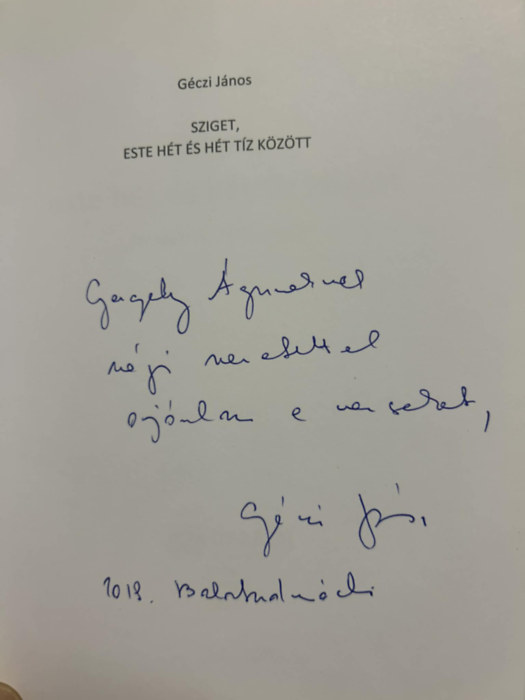 Géczi János
SZIGET,
ESTE HÉT ÉS HÉT TÍZ KÖZÖTT
Gergely Ágnesnek
régi szeretettel
ajánlom e verseket,
Géczi János
2018. Balatonalmádi